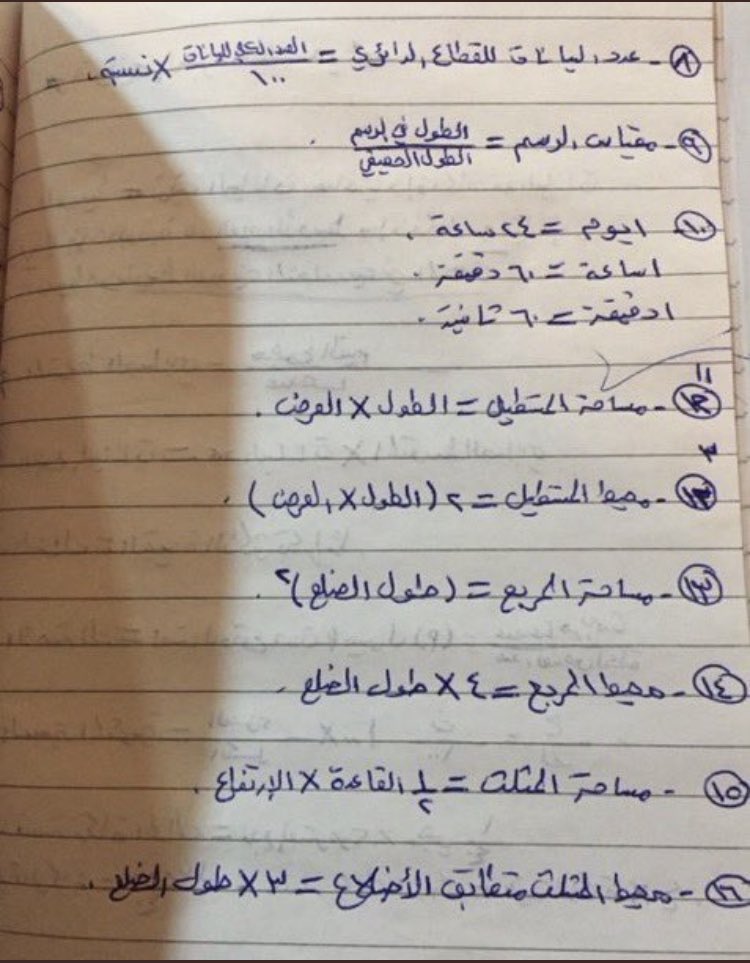 ٨- عدد البيانات للقطاع الدائري = العدد الكلي للبيانات / ١٠٠ × نسبته =
٩- مقياس الرسم = الطول في الرسم / الطول الحقيقي .
١٠- ١يوم = ٢٤ ساعة .
١ساعة = ٦٠ دقيقة .
١دقيقة = ٦٠ ثانية .
١١
١٢- مساحة المستطيل = الطول × العرض .
١٢- محيط المستطيل = ٢ (الطول × العرض) .
١٣- مساحة المربع = (طول الضلع)٢ .
١٤- محيط المربع = ٤ × طول الضلع .
١٥- مساحة المثلث = ١/٢ القاعدة × الإرتفاع .
١٦- محيط المثلث متطابق الأضلاع = ٣ × طول الضلع .